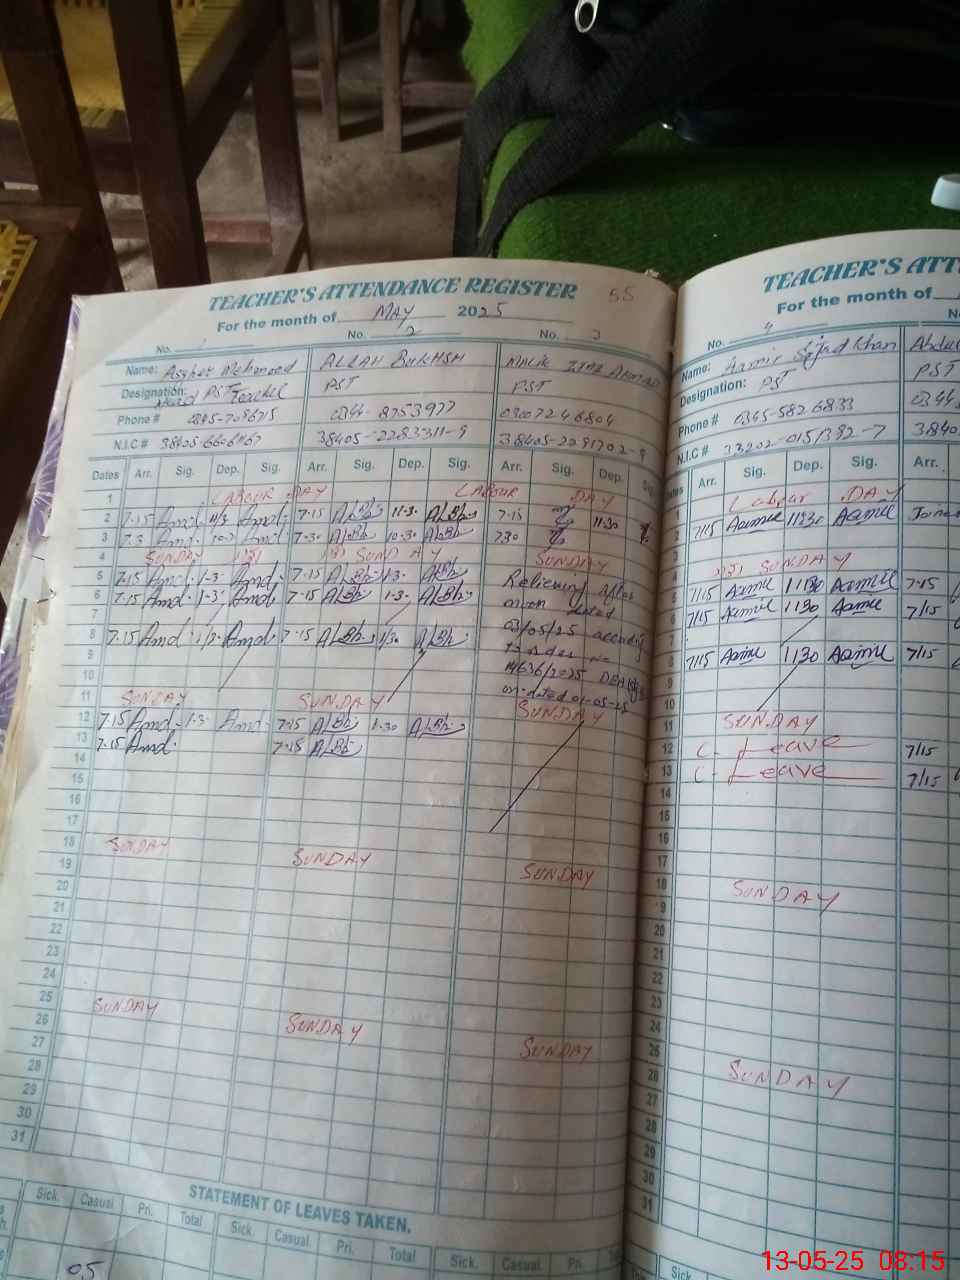 TEACHER'S ATTENDANCE REGISTER 55
For the month of MAY 2025
No. 1 No. 2 No. 3
Name: Asghar Mehmood ALLAH BUKHSH MALIK
Designation: Head PST Teacher PST PST
Phone # 0344-8753977 03007246804
N.I.C # 38405-2283311-9 38405-2291702-9
Dates Arr. Sig. Dep. Sig. Arr. Sig. Dep. Sig. Arr. Sig. Dep.
1 LABOUR DAY LABOUR DAY
2 7-15 Amd. 11/3 Amd. 7-15 A/Bh 11-3 A/Bh 7-15 11-30
3 7-3 Amd. 10-3 Amd. 7-30 A/Bh 10-30 A/Bh 730
4 SUNDAY SUNDAY SUNDAY
5 7-15 Amd. 1-3 Amd. 7-15 A/Bh 1-3 A/Bh Relieving after
6 7-15 Amd. 1-3 Amd. 7-15 A/Bh 1-3 A/Bh noon dated
7 03/05/25 according
8 7-15 Amd. 1/3 Amd. 7-15 A/Bh 1/30 A/Bh to order no
9 14636/2025 DEA
10 dated 01-05-25
11 SUNDAY SUNDAY SUNDAY
12 7-15 Amd. 1-3 Amd. 7-15 A/Bh 1-30 A/Bh
13 7-15 Amd. 7-15 A/Bh
14
15
16
17
18 SUNDAY SUNDAY SUNDAY
19
20
21
22
23
24
25 SUNDAY SUNDAY SUNDAY
26
27
28
29
30
31
STATEMENT OF LEAVES TAKEN.
Sick. Casual. Pri. Total Sick. Casual. Pri. Total Sick. Casual. Pri.
05
TEACHER'S ATT
For the month of
No. 4
Name: Aamir Sajjad Khan Abdul
Designation: PST PST
Phone # 0345-5826833 0344
N.I.C # 33202-0151392-7 3840
Arr. Sig. Dep. Sig. Arr.
Labour DAY
7/15 Aamir 1130 Aamir
SUNDAY
7/15 Aamir 1130 Aamir 7-15
7/15 Aamir 1130 Aamir 7/15
7/15 Aamir 1130 Aamir 7/15
9
10
11 SUNDAY
12 C-Leave 7/15
13 C-Leave 7/15
14
15
16
17
18 SUNDAY
19
20
21
22
23
24
25 SUNDAY
26
27
28
29
30
31
Sick
13-05-25 08:15